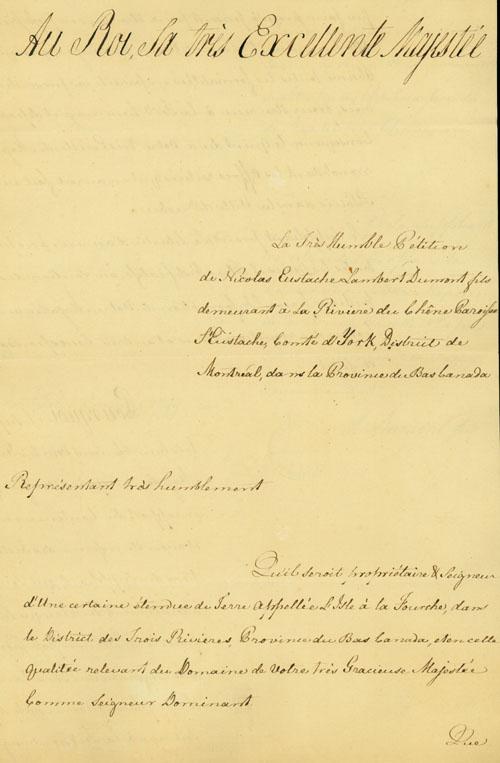 Au Roi, Sa très Excellente Majestée
La Très Humble Pétition
de Nicolas Eustache Lambert Dumont fils
demeurant à La Riviere du Chêne Paroisse
St Eustache, Comté d'York, District de
Montréal, dans la Province du Bas Canada
Représentant très humblement
Qu'il seroit propriétaire & Seigneur
d'Une certaine étendue de Terre appellée L'Isle à la Fourche, dans
le District des Trois Rivières, Province du Bas Canada, et en cette
qualitée relevant du Domaine de Votre très Gracieuse Majestée
Comme Seigneur Dominant
Que